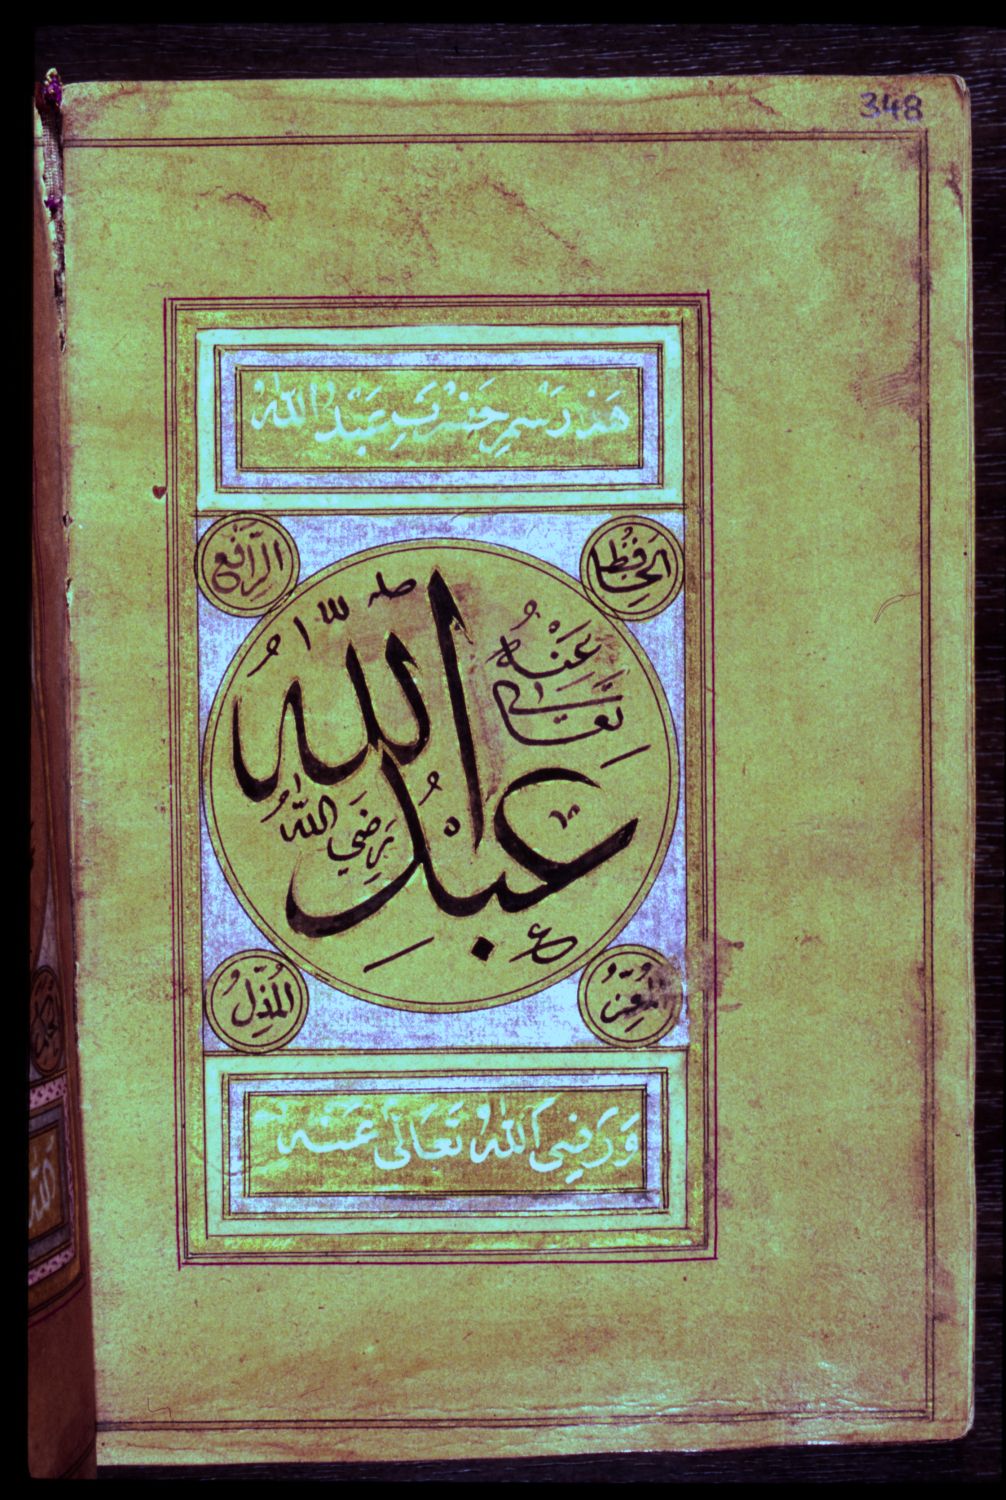 348
هَذَ دَسْمِ حَضْرَتِ عَبْدُ اللهُ
الحَافِظُ
الرَّافِعُ
عَبْدُ اللهُ
رَضِيَ اللهُ
تَعَالَى
عَنْهُ
المُعِزُّ
المُذِلُّ
وَرَضِيَ اللهُ تَعَالَى عَنْهُ